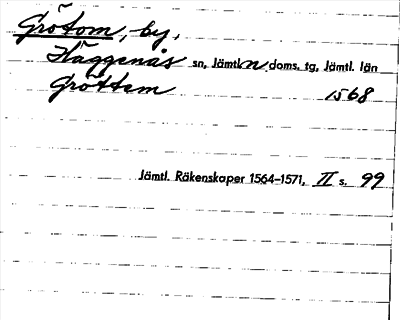 Grötom, by,
Häggenås sn, Jämtl. n doms. tg, Jämtl. län
Gröttem 1568
Jämtl. Räkenskaper 1564–1571, II s. 99